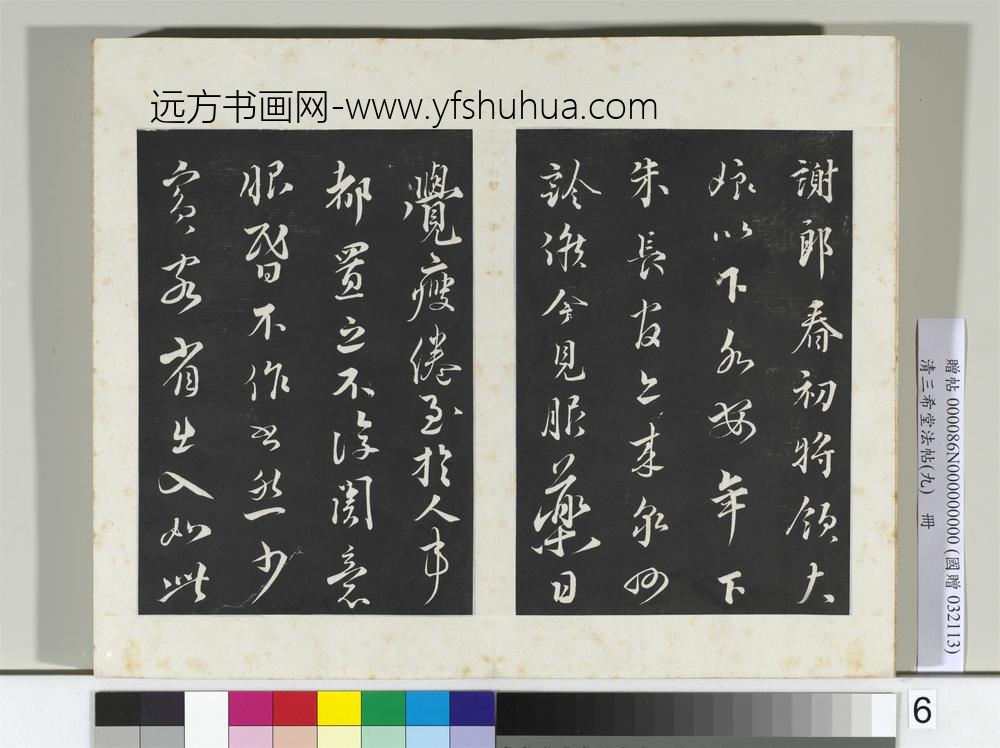 远方书画网-www.yfshuhua.com
謝郎春初將領大
娘以下各安年下
朱長官亦來泉州
診候今見服藥日
覺瘦倦至於人事
都置之不復關意
眼昬不作書然少
賓客省出入如此
贈帖 000086N000000000 (國贈 032113)
清三希堂法帖(九) 冊
6